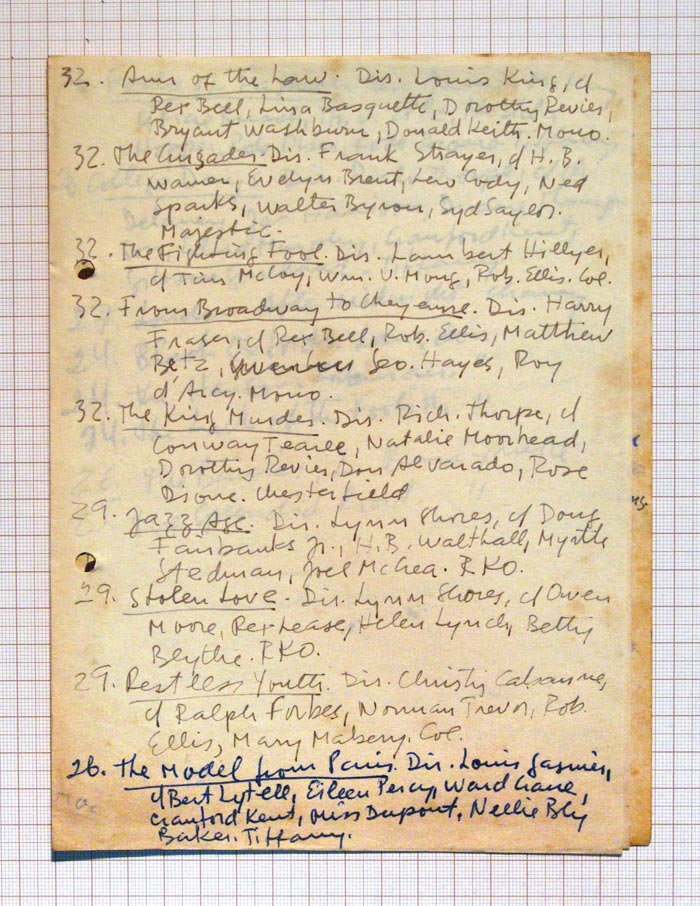 32. Arm of the Law. Dir. Louis King, c/
Rex Bell, Lina Basquette, Dorothy Revier,
Bryant Washburn, Donald Keith. Mono.
32. The Crusader. Dir. Frank Strayer, c/ H. B.
Warner, Evelyn Brent, Lew Cody, Ned
Sparks, Walter Byron, Syd Saylor.
Majestic.
32. The Fighting Fool. Dir. Lambert Hillyer,
c/ Tim McCoy, Wm. V. Mong, Rob. Ellis. Col.
32. From Broadway to Cheyenne. Dir. Harry
Fraser, c/ Rex Bell, Rob. Ellis, Matthew
Betz, Geo. Hayes, Roy
d'Arcy. Mono.
32. The King Murder. Dir. Rich. Thorpe, c/
Conway Tearle, Natalie Moorhead,
Dorothy Revier, Don Alvarado, Rose
Dione. Chesterfield
29. Jazz Age. Dir. Lynn Shores, c/ Doug
Fairbanks Jr., H. B. Walthall, Myrtle
Stedman, Joel McCrea. RKO.
29. Stolen Love. Dir. Lynn Shores, c/ Owen
Moore, Rex Lease, Helen Lynch, Betty
Blythe. RKO.
29. Restless Youth. Dir. Christy Cabanne,
c/ Ralph Forbes, Norman Trevor, Rob.
Ellis, Mary Mabery. Col.
26. The Model from Paris. Dir. Louis Gasnier,
c/ Bert Lytell, Eileen Percy, Ward Crane,
Cranford Kent, Miss Dupont, Nellie Bly
Baker. Tiffany.